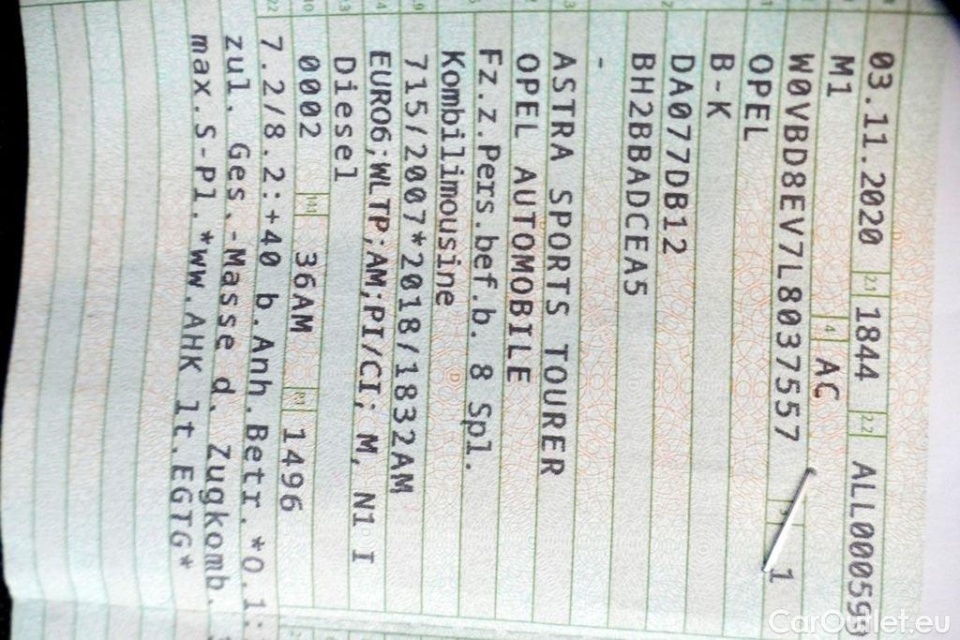 03.11.2020 2.1 1844 2.2 ALL00059
M1 4 AC
W0VBD8EV7L8037557 1
OPEL
B-K
DA077DB12
BH2BBADCEA5
-
ASTRA SPORTS TOURER
OPEL AUTOMOBILE
Fz.z.Pers.bef.b. 8 Spl.
Kombilimousine
715/2007*2018/1832AM
EURO6;WLTP;AM;PI/CI; M, N1 I
Diesel
0002 14.1 36AM P.1 1496
7.2/8.2:+40 b.Anh.Betr.*0.1:
zul. Ges.-Masse d. Zugkomb.
max.S-Pl.*ww.AHK lt.EGTG*
CarOutlet.eu